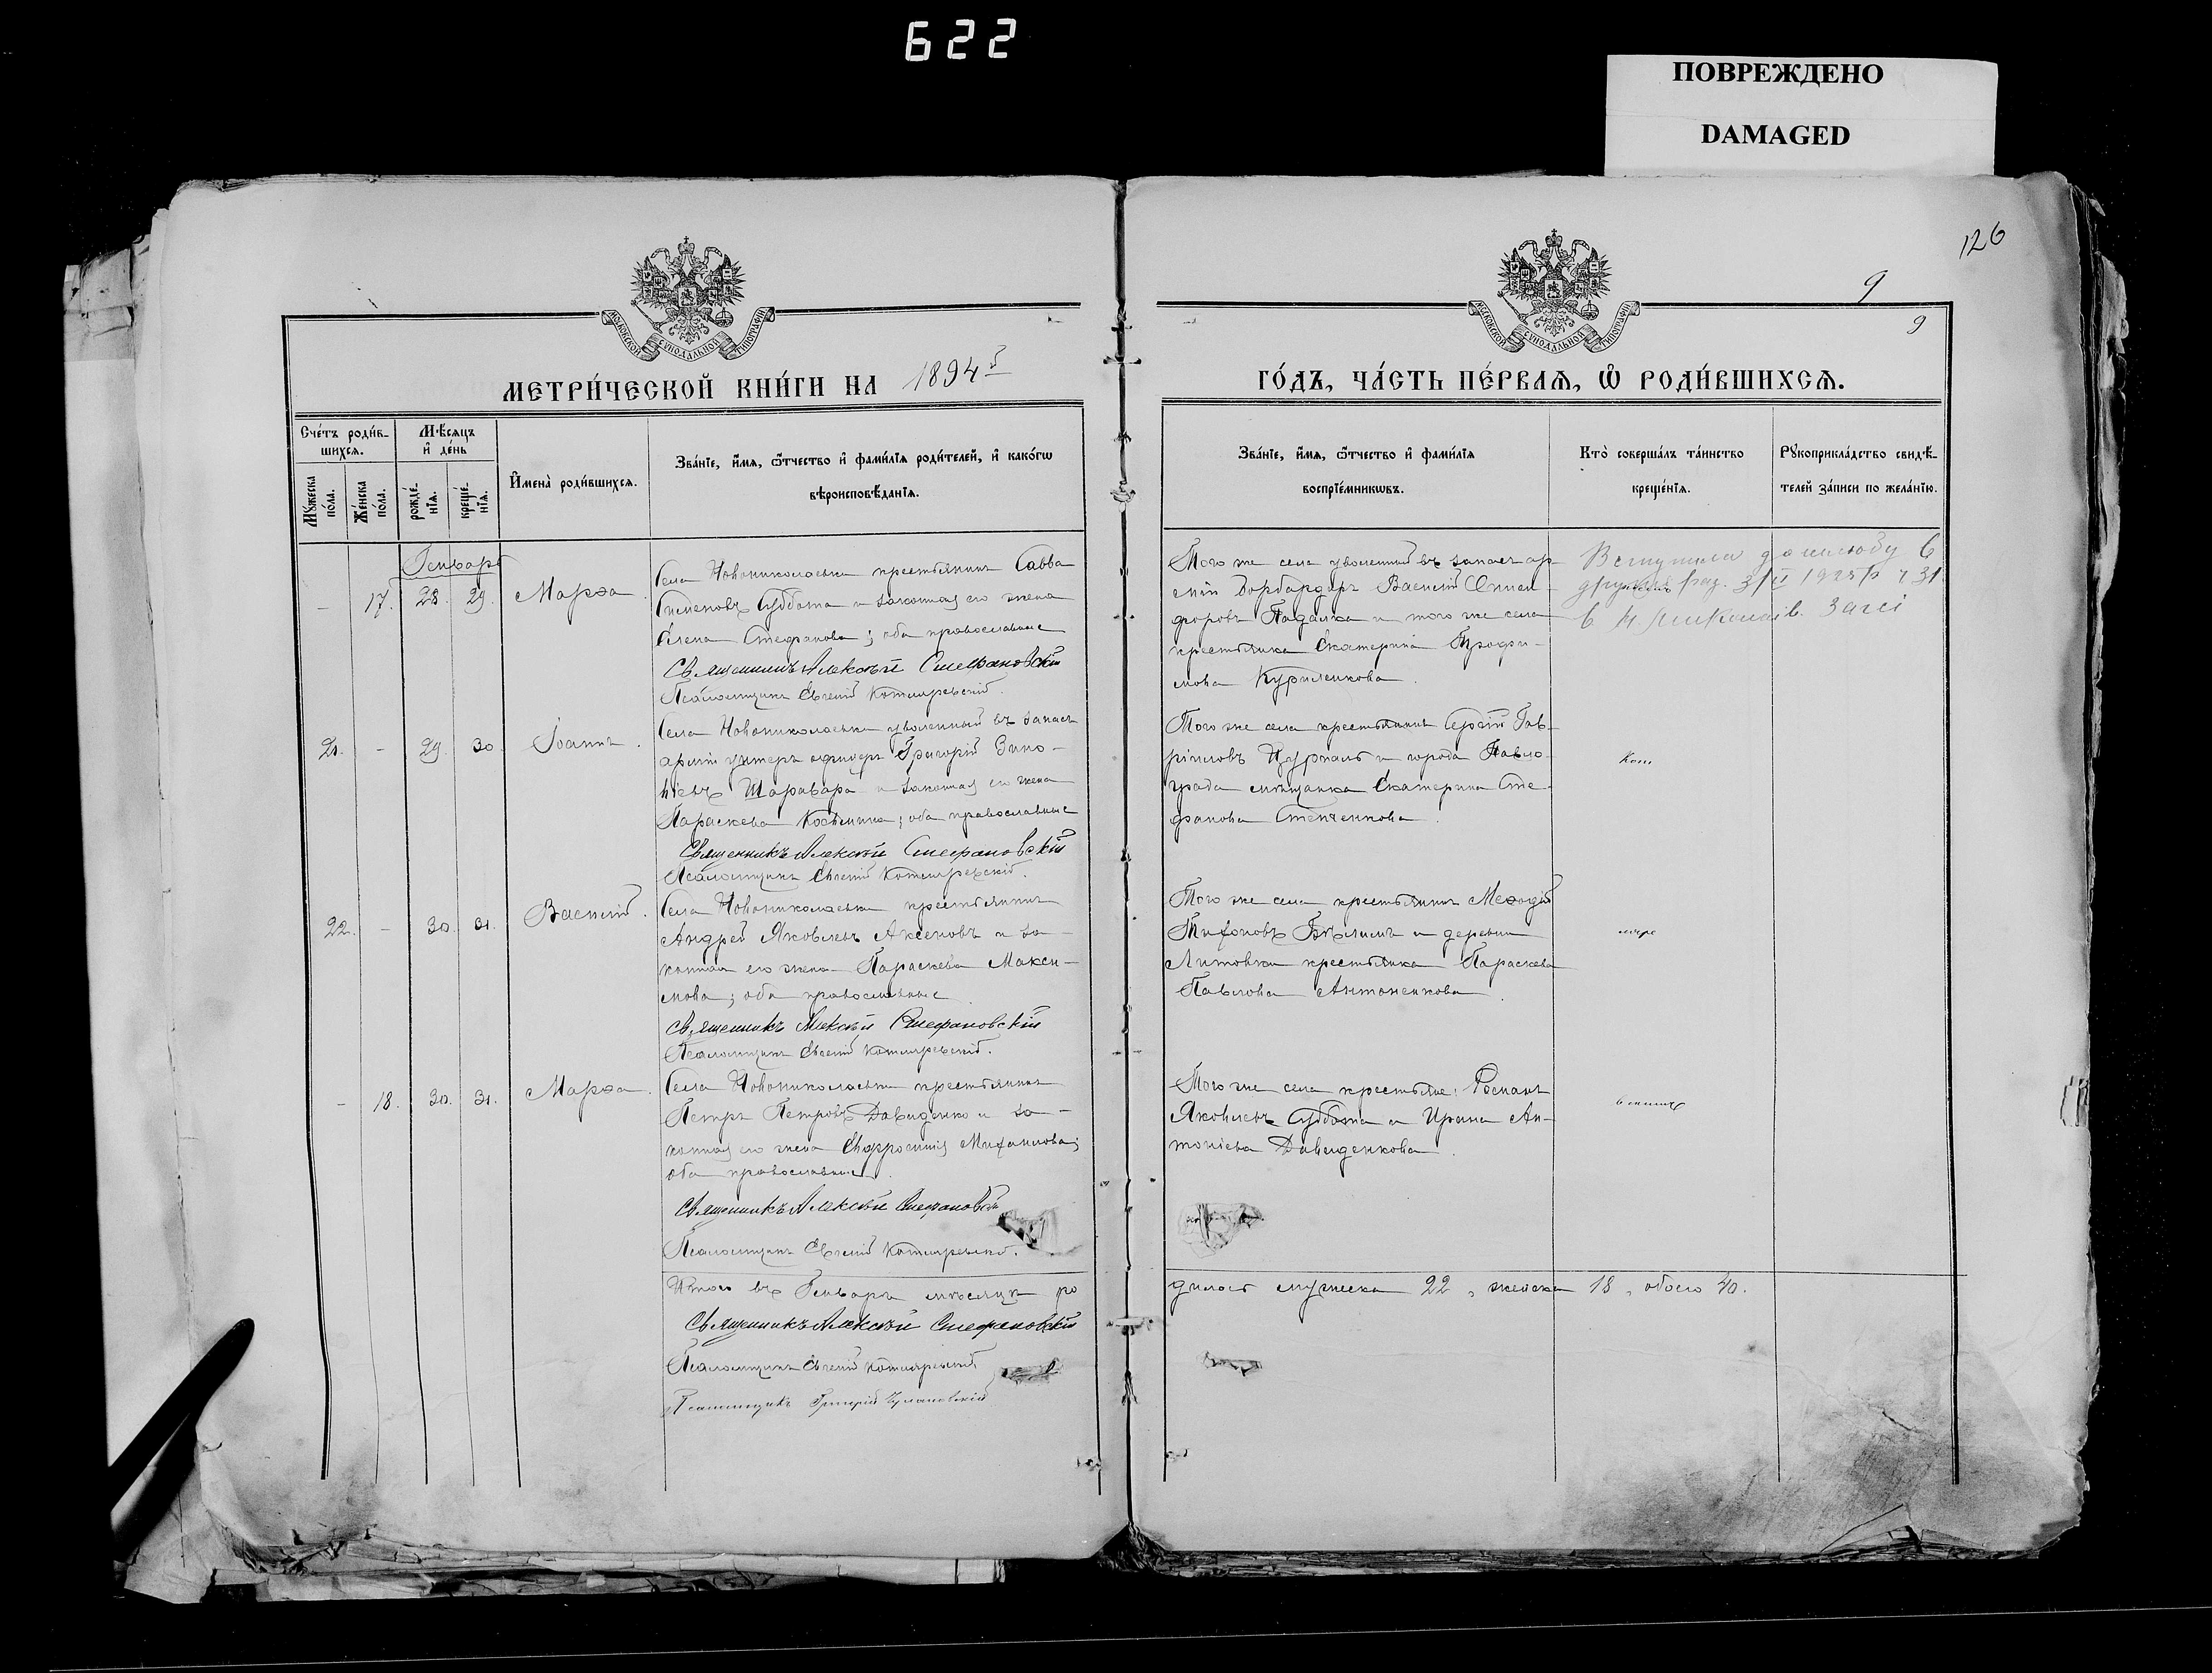 622
ПОВРЕЖДЕНО
DAMAGED
126
9
9
МОСКОВСКОЙ СѴНОДАЛЬНОЙ ТИПОГРАФІИ
МОСКОВСКОЙ СѴНОДАЛЬНОЙ ТИПОГРАФІИ
МЕТРИ́ЧЕСКОЙ КНИ́ГИ НА 1894 г̃
ГО́ДЪ, ЧА́СТЬ ПЕ́РВАЯ, Ѡ҆ РОДИ́ВШИХСЯ.
Сче́тъ роди́в-
шихся.
Мꙋ́жеска по́ла.
Же́нска по́ла.
Мѣ́сяцъ и҆ де́нь
рожде́нїя.
креще́нїя.
И҆мена̀ роди́вшихся.
Зва́нїе, и҆́мя, ѻ҆́тчество и҆ фами́лїя роди́телей, и҆ како́гѡ
вѣроисповѣ́данїя.
Зва́нїе, и҆́мя, ѻ҆́тчество и҆ фами́лїя
воспрїе́мникѡвъ.
Кто̀ соверша́лъ та́инство
креще́нїя.
Рꙋкоприкла́дство свидѣ́-
телей за́писи по жела́нїю.
Генварь
- 17. 28. 29. Марѳа
Села Новониколаевки крестьянинъ Савва
Суббота и законная его жена
Елена Стефанова; оба православные
Священникъ Алексѣй Стефановскій
Псаломщикъ Евгеній Котляревскій.
Того же села уволенный въ запасъ ар-
міи Бомбардиръ Василій Онис-
форовъ Падалка и того же села
крестьянка Екатерина Трофи-
мова Куриленкова.
21. - 29. 30. Іоаннъ.
Села Новониколаевки уволенный въ запасъ
арміи унтеръ офицеръ Григорій Зино-
вьевъ Шаравара и законная его жена
Параскева Косьмина; оба православные
Священникъ Алексѣй Стефановскій
Псаломщикъ Евгеній Котляревскій.
Того же села крестьянинъ Сергій Гав-
ріиловъ и города Павло-
града мѣщанка Екатерина Сте-
фанова Степченкова.
22. - 30. 31. Василій.
Села Новониколаевки крестьянинъ
Андрей Яковлевъ Аксеновъ и за-
конная его жена Параскева Макси-
мова; оба православные
Священникъ Алексѣй Стефановскій
Псаломщикъ Евгеній Котляревскій.
Того же села крестьянинъ Меѳодій
и деревни
Литовки крестьянка Параскева
Павлова Антоненкова.
- 18. 30. 31. Марѳа.
Села Новониколаевки крестьянинъ
Петръ Петровъ Давиденко и за-
конная его жена Евфросинія Михаилова;
оба православные.
Священникъ Алексѣй Стефановскій
Псаломщикъ Евгеній Котляревскій.
Того же села крестьяне: Романъ
Яковлевъ Суббота и Ирина Ан-
тоніева Давиденкова.
Итого въ Генварѣ мѣсяцѣ родилось мужеска 22, женска 18, обоего 40.
Священникъ Алексѣй Стефановскій
Псаломщикъ Евгеній Котляревскій
Псаломщикъ Григорій